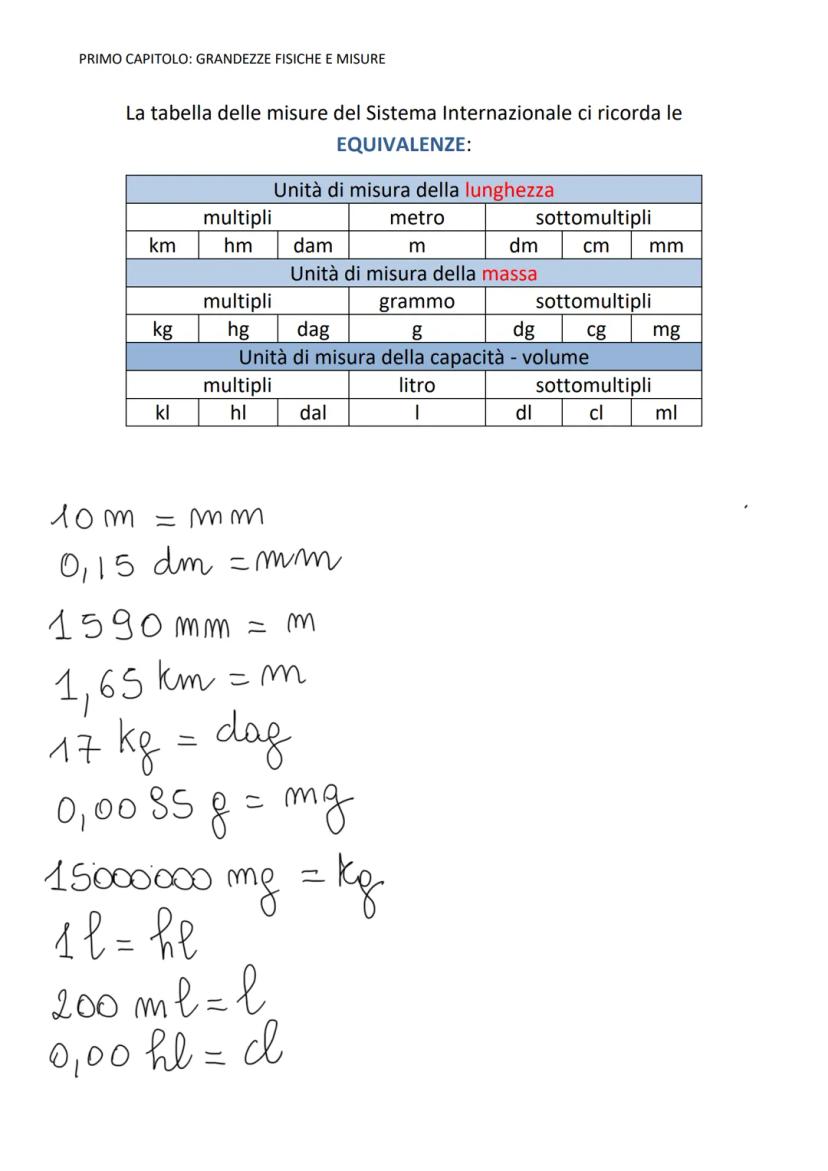 PRIMO CAPITOLO: GRANDEZZE FISICHE E MISURE
La tabella delle misure del Sistema Internazionale ci ricorda le
EQUIVALENZE:
Unità di misura della lunghezza
multipli metro sottomultipli
km hm dam m dm cm mm
Unità di misura della massa
multipli grammo sottomultipli
kg hg dag g dg cg mg
Unità di misura della capacità - volume
multipli litro sottomultipli
kl hl dal l dl cl ml
10 m = mm
0,15 dm = mm
1590 mm = m
1,65 km = m
17 kg = dag
0,0085 g = mg
15000000 mg = kg
1 l = hl
200 ml = l
0,00 hl = cl